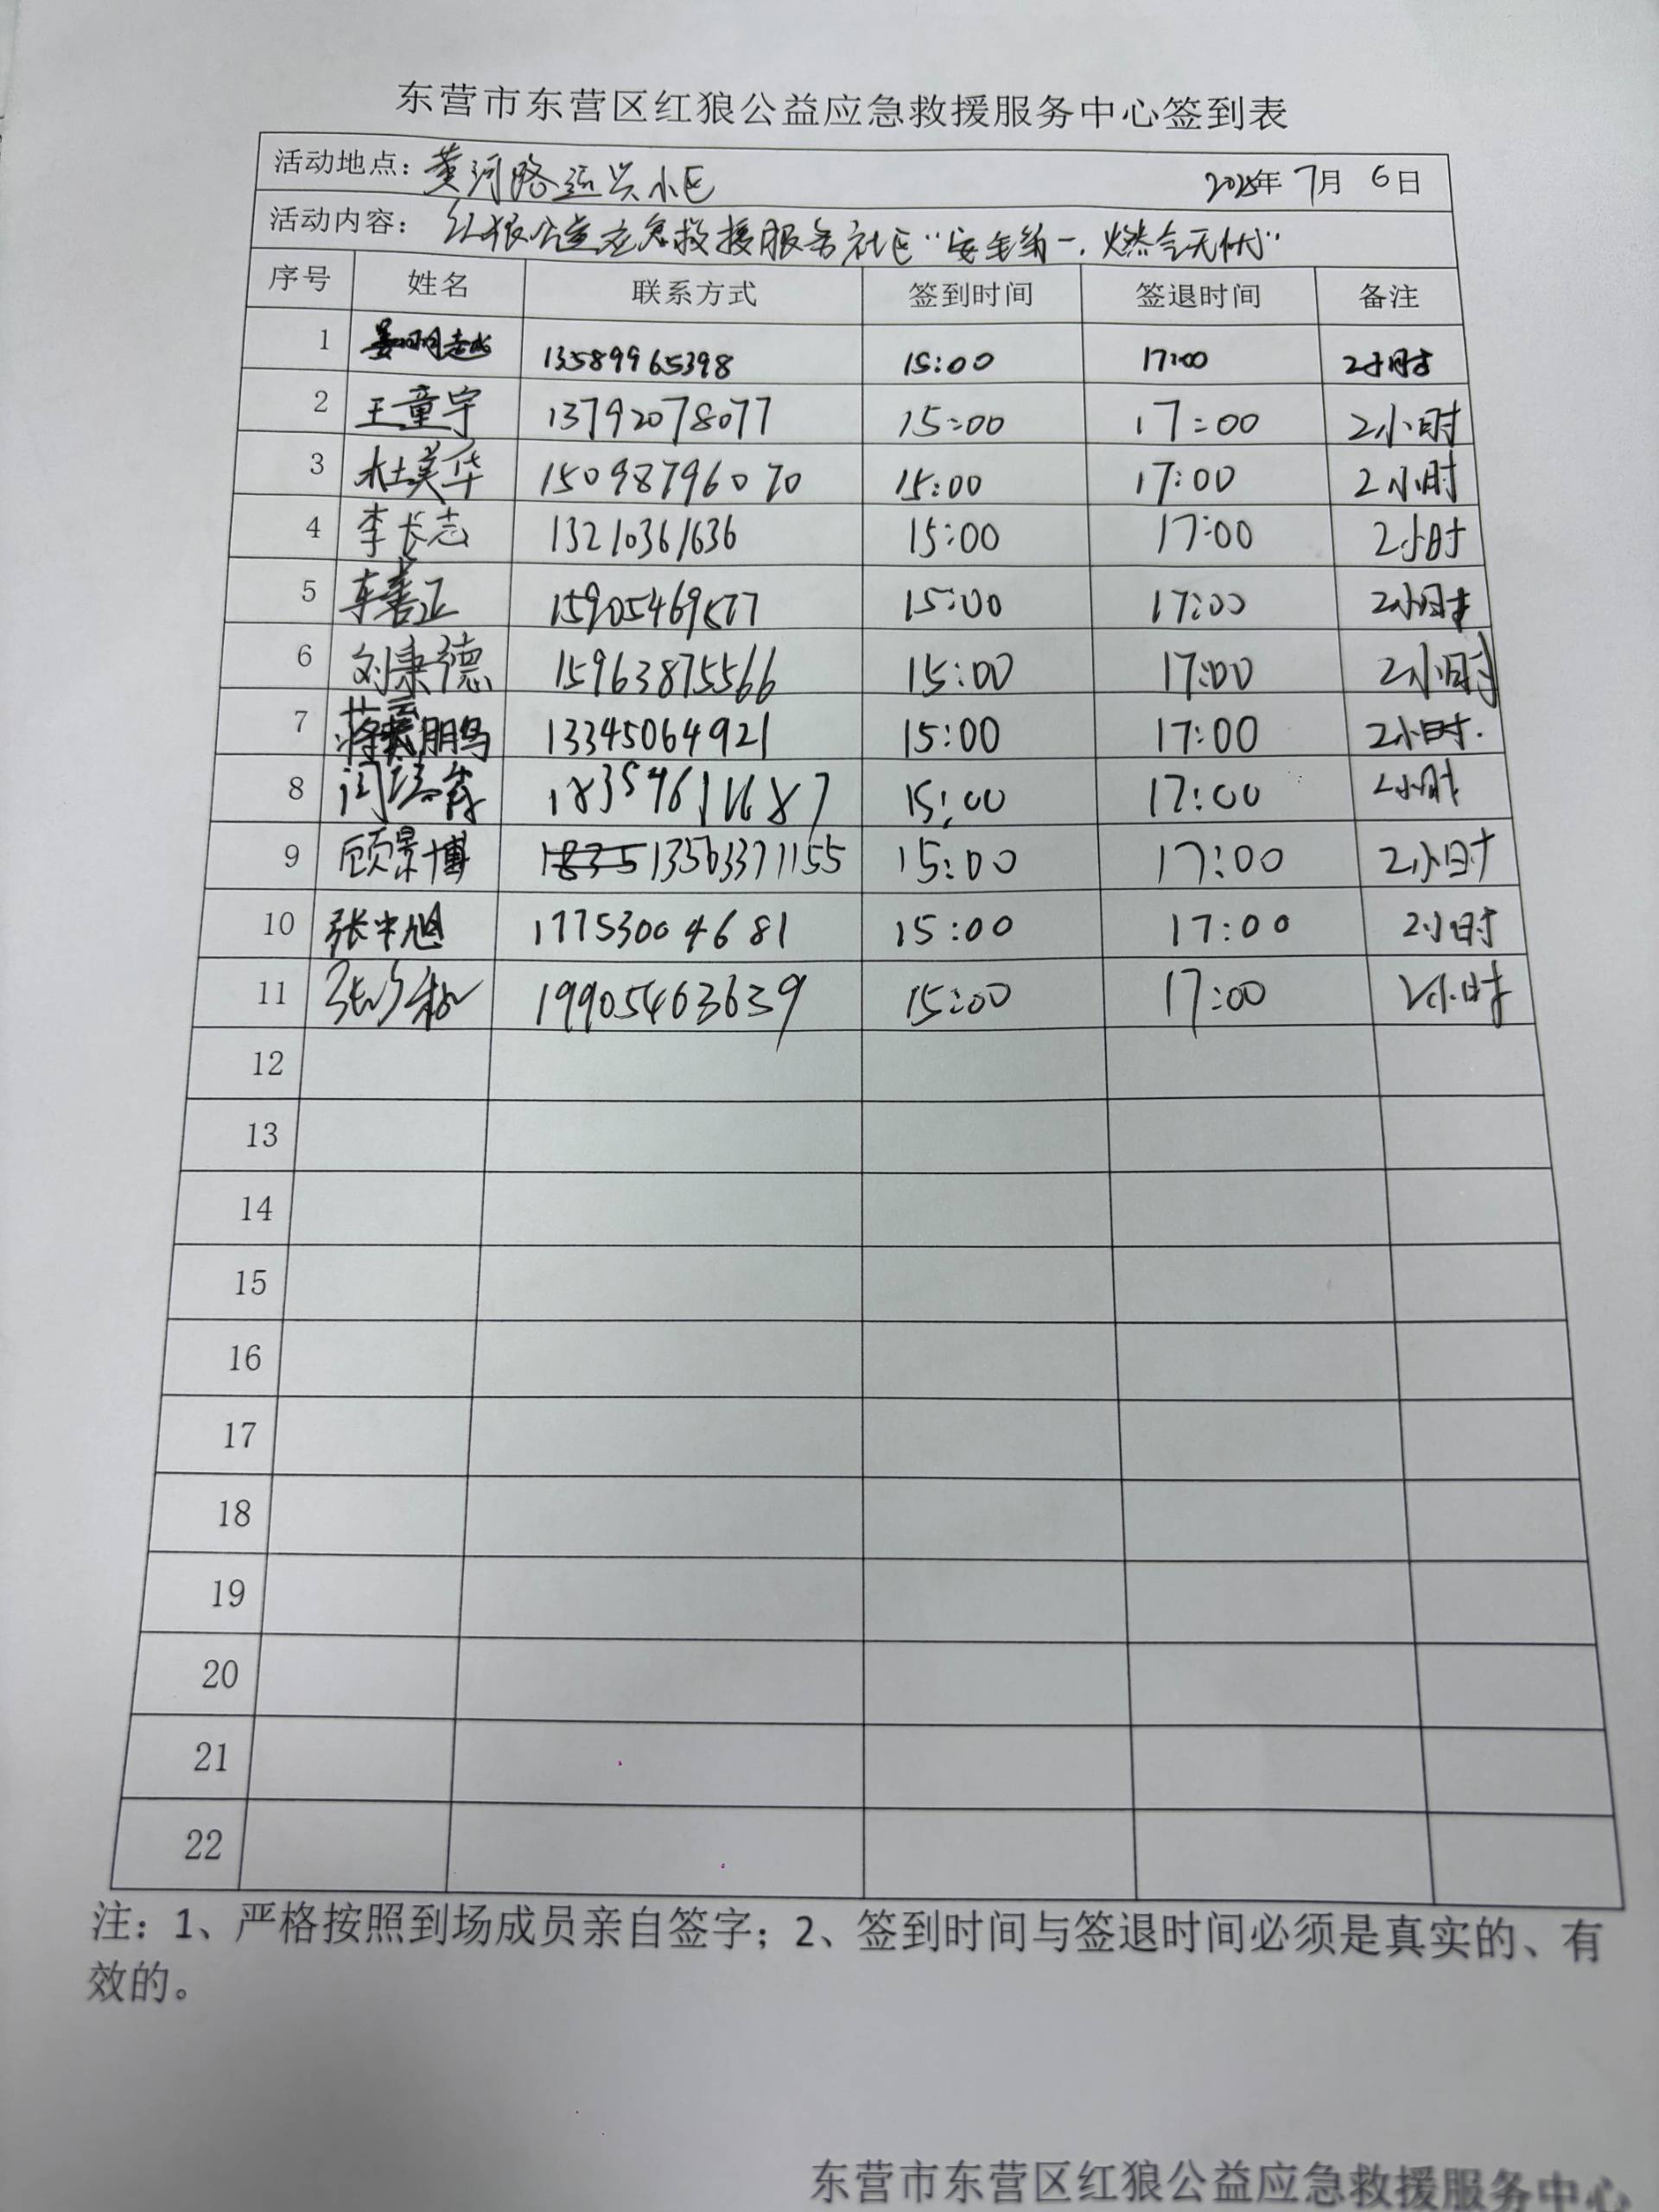 东营市东营区红狼公益应急救援服务中心签到表
活动地点：黄河路运兴小区 2025年 7月 6日
活动内容：红狼公益应急救援服务社区“安全第一，燃气无忧”
序号 姓名 联系方式 签到时间 签退时间 备注
1 13589965398 15:00 17:00 2小时
2 王童宇 13792078077 15:00 17:00 2小时
3 杜美华 15098796070 15:00 17:00 2小时
4 李长志 13210361636 15:00 17:00 2小时
5 车善正 15:00 17:00 2小时
6 刘康德 15963875566 15:00 17:00 2小时
7 蒋云鹏 13345064921 15:00 17:00 2小时.
8 15:00 17:00 2小时
9 顾景博 13563371155 15:00 17:00 2小时
10 张中旭 17753004681 15:00 17:00 2小时
11 19905463639 15:00 17:00 2小时
12
13
14
15
16
17
18
19
20
21
22
注：1、严格按照到场成员亲自签字；2、签到时间与签退时间必须是真实的、有
效的。
东营市东营区红狼公益应急救援服务中心